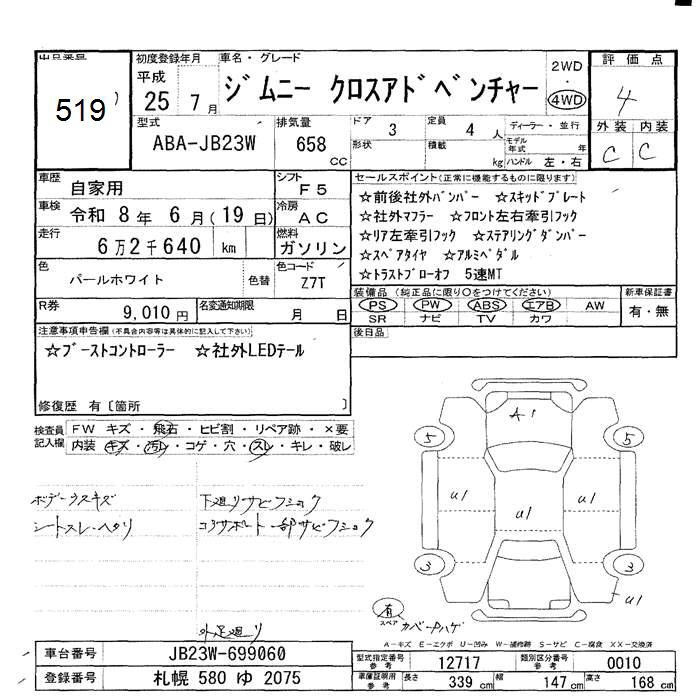 出品番号 初度登録年月 車名・グレード 2WD 評価点
519 平成 25 7月 ジムニー クロスアドベンチャー ・ 4WD 4
型式 排気量 ドア 3 定員 4 人 ディーラー・並行 外装 内装
ABA-JB23W 658 CC 形状 積載 kg モデル年式 年 ハンドル 左・右 C C
車歴 自家用 シフト F5 セールスポイント(正常に機能するものに限ります)
車検 令和 8年 6月(19日) 冷房 AC ☆前後社外バンパー ☆スキッドプレート
☆社外マフラー ☆フロント左右牽引フック
走行 6万2千640 km 燃料 ガソリン ☆リア左牽引フック ☆ステアリングダンパー
☆スペアタイヤ ☆アルミペダル
色 パールホワイト 色替 色コード Z7T ☆トラストブローオフ 5速MT
R券 9,010円 名変通知期限 月 日 装備品(純正品に限り○をつけてください) 新車保証書
PS PW ABS エアB AW 有・無
SR ナビ TV カワ
注意事項申告欄(不具合内容等は具体的に記入して下さい) 後日品
☆ブーストコントローラー ☆社外LEDテール
修復歴 有〔箇所 〕
検査員 FW キズ・飛石・ヒビ割・リペア跡・×要
記入欄 内装 キズ・汚レ・コゲ・穴・スレ・キレ・破レ
A1
5 5
U1 U1 U1
ボデーウスキズ 下廻りサビフショク
シートスレ・ヘタリ コアサポート一部サビフショク
3 3
U1
有 スペア カバーPハゲ
外 足廻り
A-キズ E-エクボ U-凹み W-補修跡 S-サビ C-腐食 XX-交換済
車台番号 JB23W-699060 型式指定番号 参考 12717 類別区分番号 参考 0010
登録番号 札幌 580 ゆ 2075 車庫証明用 参考 長さ 339 cm 幅 147 cm 高さ 168 cm